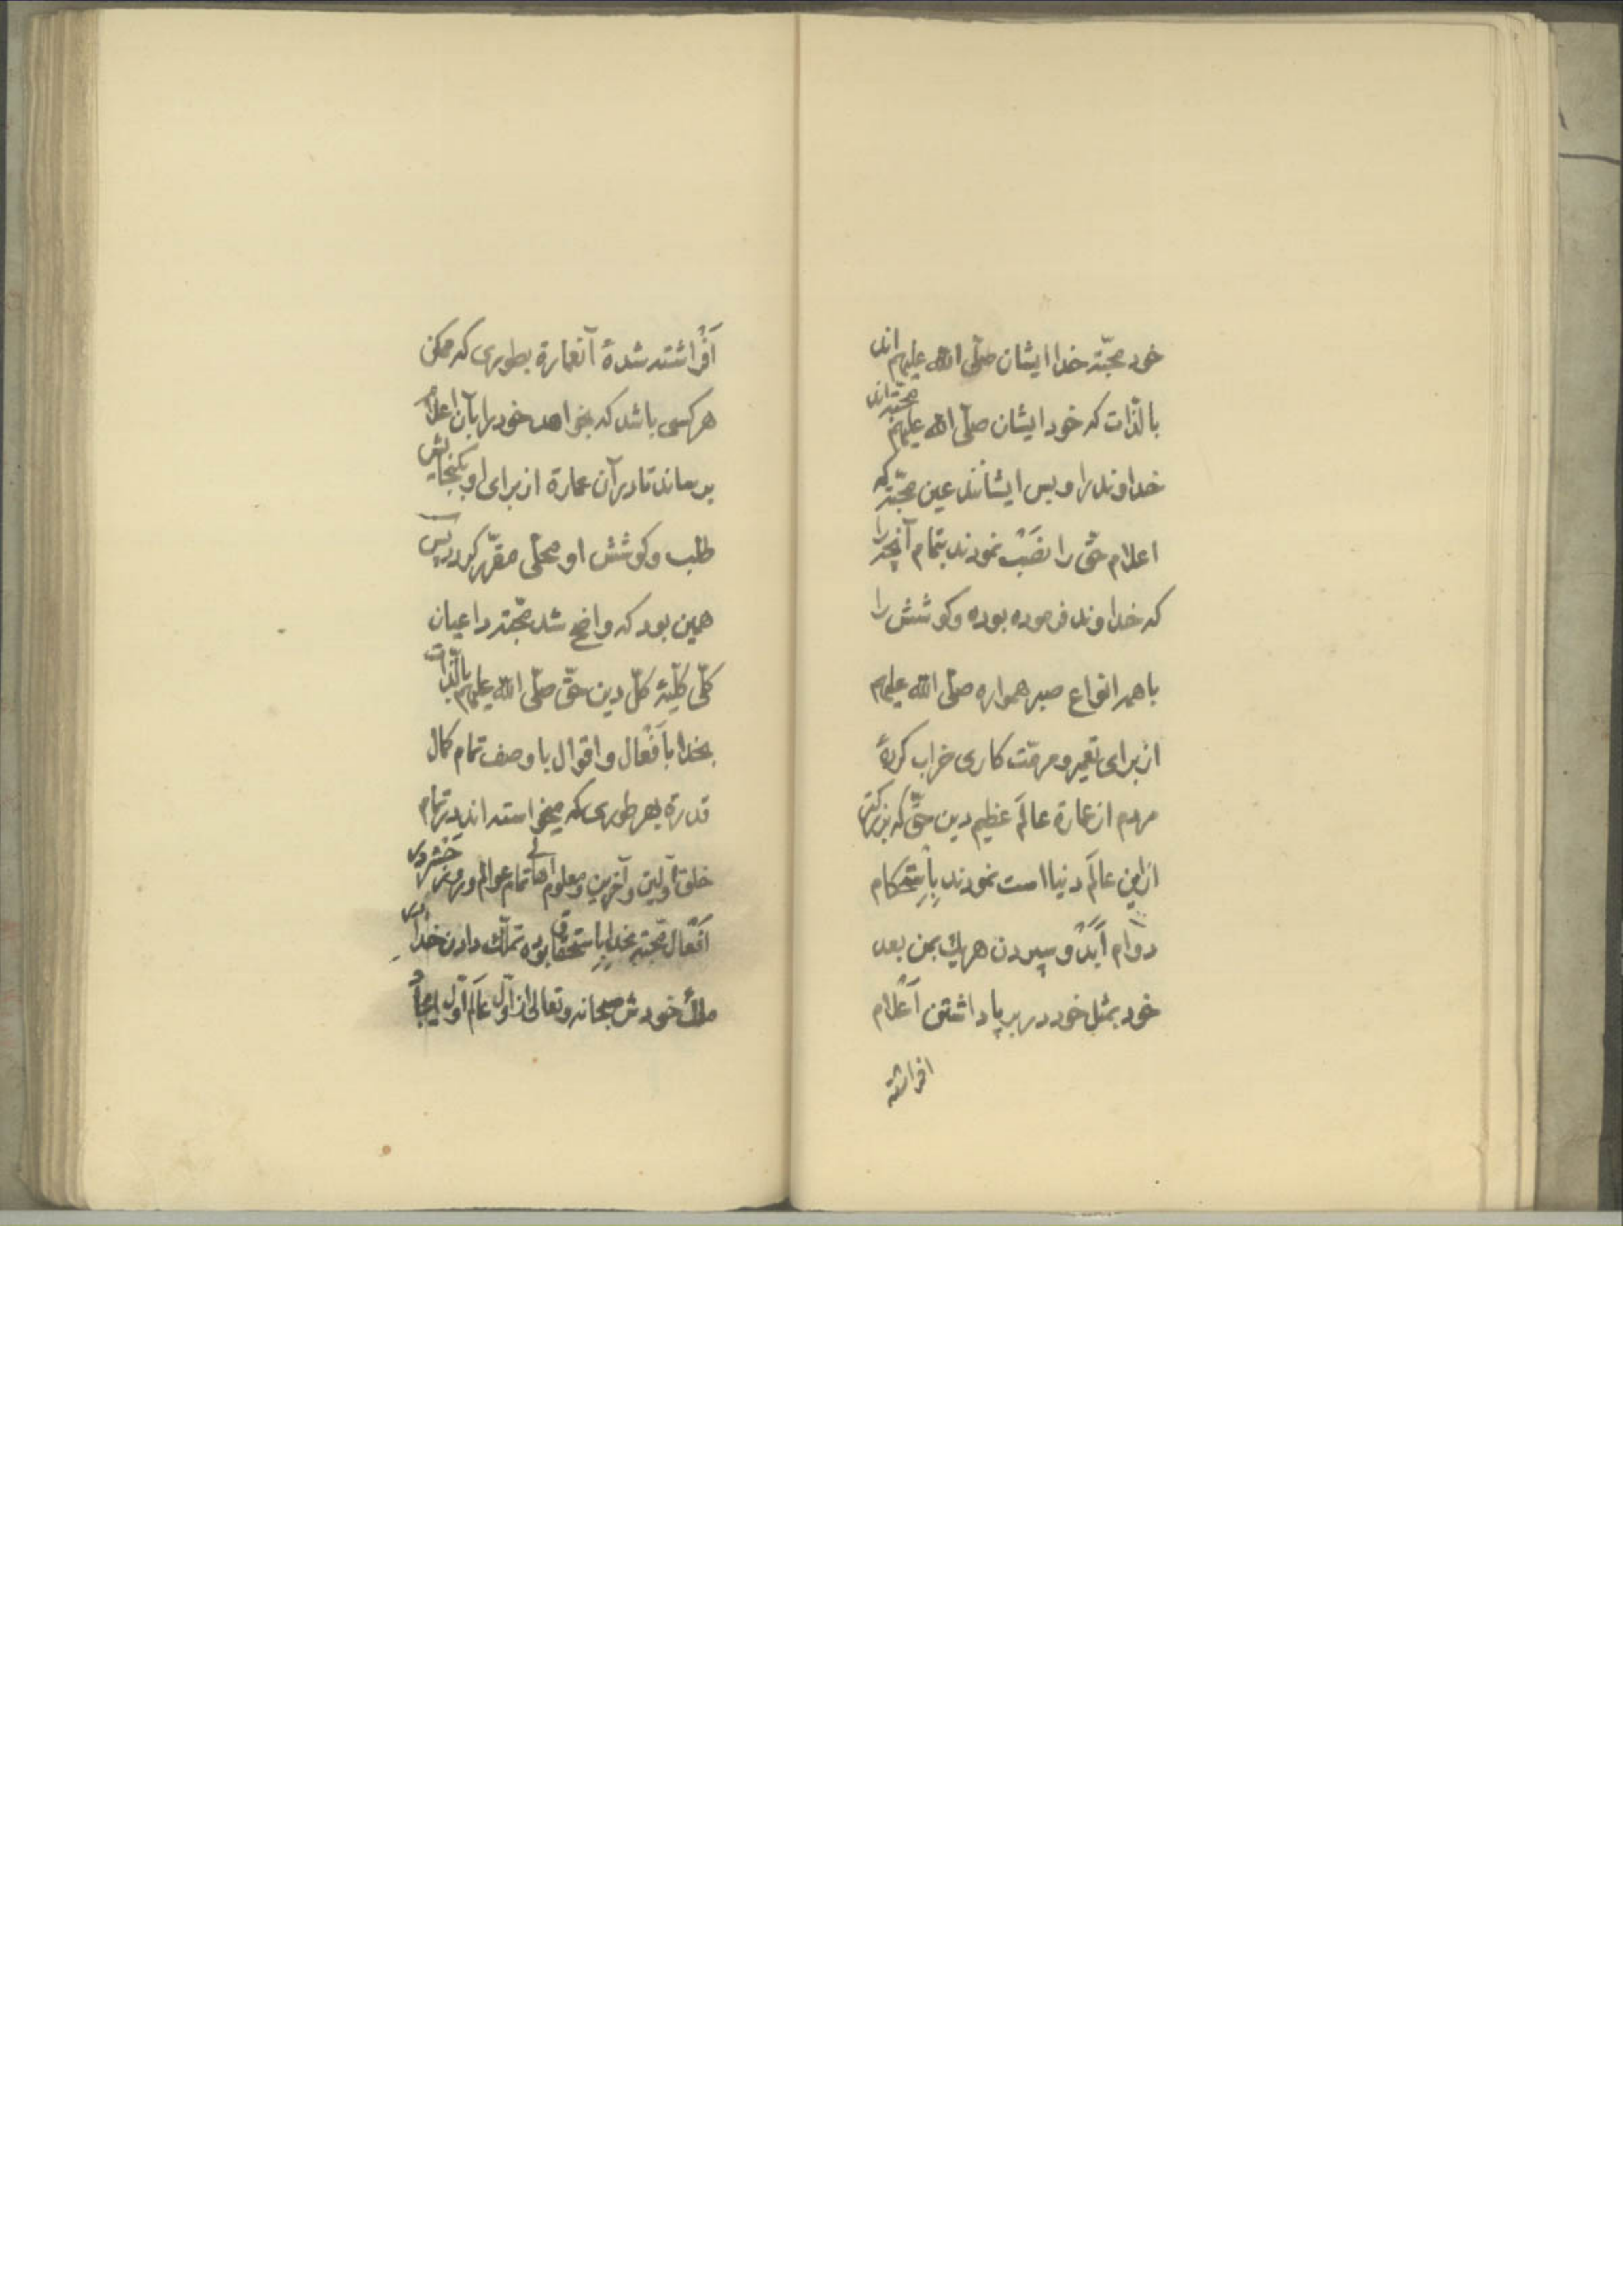 خود محبّة خدا ایشان صلّی الله علیهم اند
بالذّات که خود ایشان صلّی الله علیهم محبّة اند
خداوند را و بس ایشانند عین محبّة که
اعلام حقّ را نَصَبْ نمودند بتمام آنچه را
که خداوند فرموده بوده و کوشش را
با همه انواع صبر همواره صلّی الله علیهم
از برای تعمیر و مرمّت کاری خراب کردۀ
مردم از عمارة عالَم عظیم دین حقّ که بزرگتر
ازاین عالَم دنیا است نمودند بِاِستحکام
دوام اَبَدْ و سپردن هریك بمن بعد
خود بمثل خود در برپا داشتن اَعْلام
افراشته
اَفْراشته شدۀ آنعمارة بطوری که ممکن
هرکسی باشد که بخواهد خود را بآن اعلام
برساند تا در آن عمارة از برای او بگنجایش
طلب و کوشش او محلّی مقرّر گردد پس
همین بود که واضح شد محبّة داعیان
کلّی کلّیّۀ کلّ دین حقّ صلّی الله علیهم بالذّات
بخدا با اَفْعال و اقوال با وصف تمام کمال
قدرة بهر طوری که میخواسته اند در تمام
خلق اوّلین و آخرین و معلوم اهالی تمام عوالم و روز حشر و
اَفْعال محبّة بخدا بِاِستحقاق بوده تملّك دادن خدا
ملك خودش سبحانه و تعالی از اوّل عالَم اوّل ایجاد